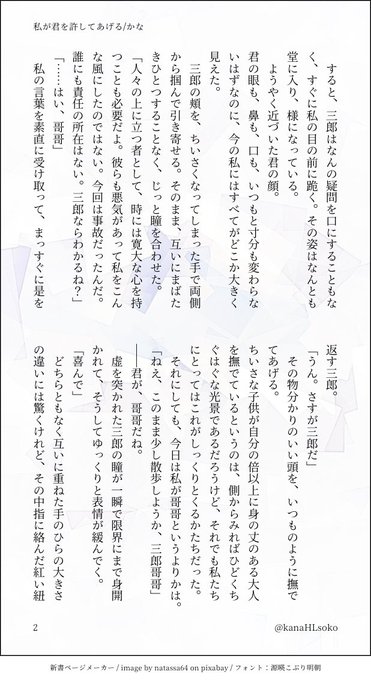 私が君を許してあげる/かな
　すると、三郎はなんの疑問を口にすることもな
く、すぐに私の目の前に跪く。その姿はなんとも
堂に入り、様になっている。
　ようやく近づいた君の顔。
君の眼も、鼻も、口も、いつもと寸分も変わらな
いはずなのに、今の私にはすべてがどこか大きく
見えた。
　三郎の頬を、ちいさくなってしまった手で両側
から掴んで引き寄せる。そのまま、互いにまばた
きひとつすることなく、じっと瞳を合わせた。
「人々の上に立つ者として、時には寛大な心を持
つことも必要だよ。彼らも悪気があって私をこん
な風にしたのではない。今回は事故だったんだ。
誰にも責任の所在はない。三郎ならわかるね？」
「……はい、哥哥」
　私の言葉を素直に受け取って、まっすぐに是を
返す三郎。
「うん。さすが三郎だ」
　その物分かりのいい頭を、いつものように撫で
てあげる。
　ちいさな子供が自分の倍以上に身の丈のある大人
を撫でているというのは、側からみればひどくち
ぐはぐな光景であるだろうけど、それでも私たち
にとってはこれがしっくりとくるかたちだった。
　それにしても、今日は私が哥哥というよりかは。
「ねえ、このまま少し散歩しようか、三郎哥哥」
――君が、哥哥だね。
　虚を突かれた三郎の瞳が一瞬で限界にまで身開
かれて、そうしてゆっくりと表情が緩んでく。
「喜んで」
　どちらともなく互いに重ねた手のひらの大きさ
の違いには驚くけれど、その中指に絡んだ紅い紐
2
@kanaHLsoko
新書ページメーカー / image by natassa64 on pixabay / フォント：源暎こぶり明朝